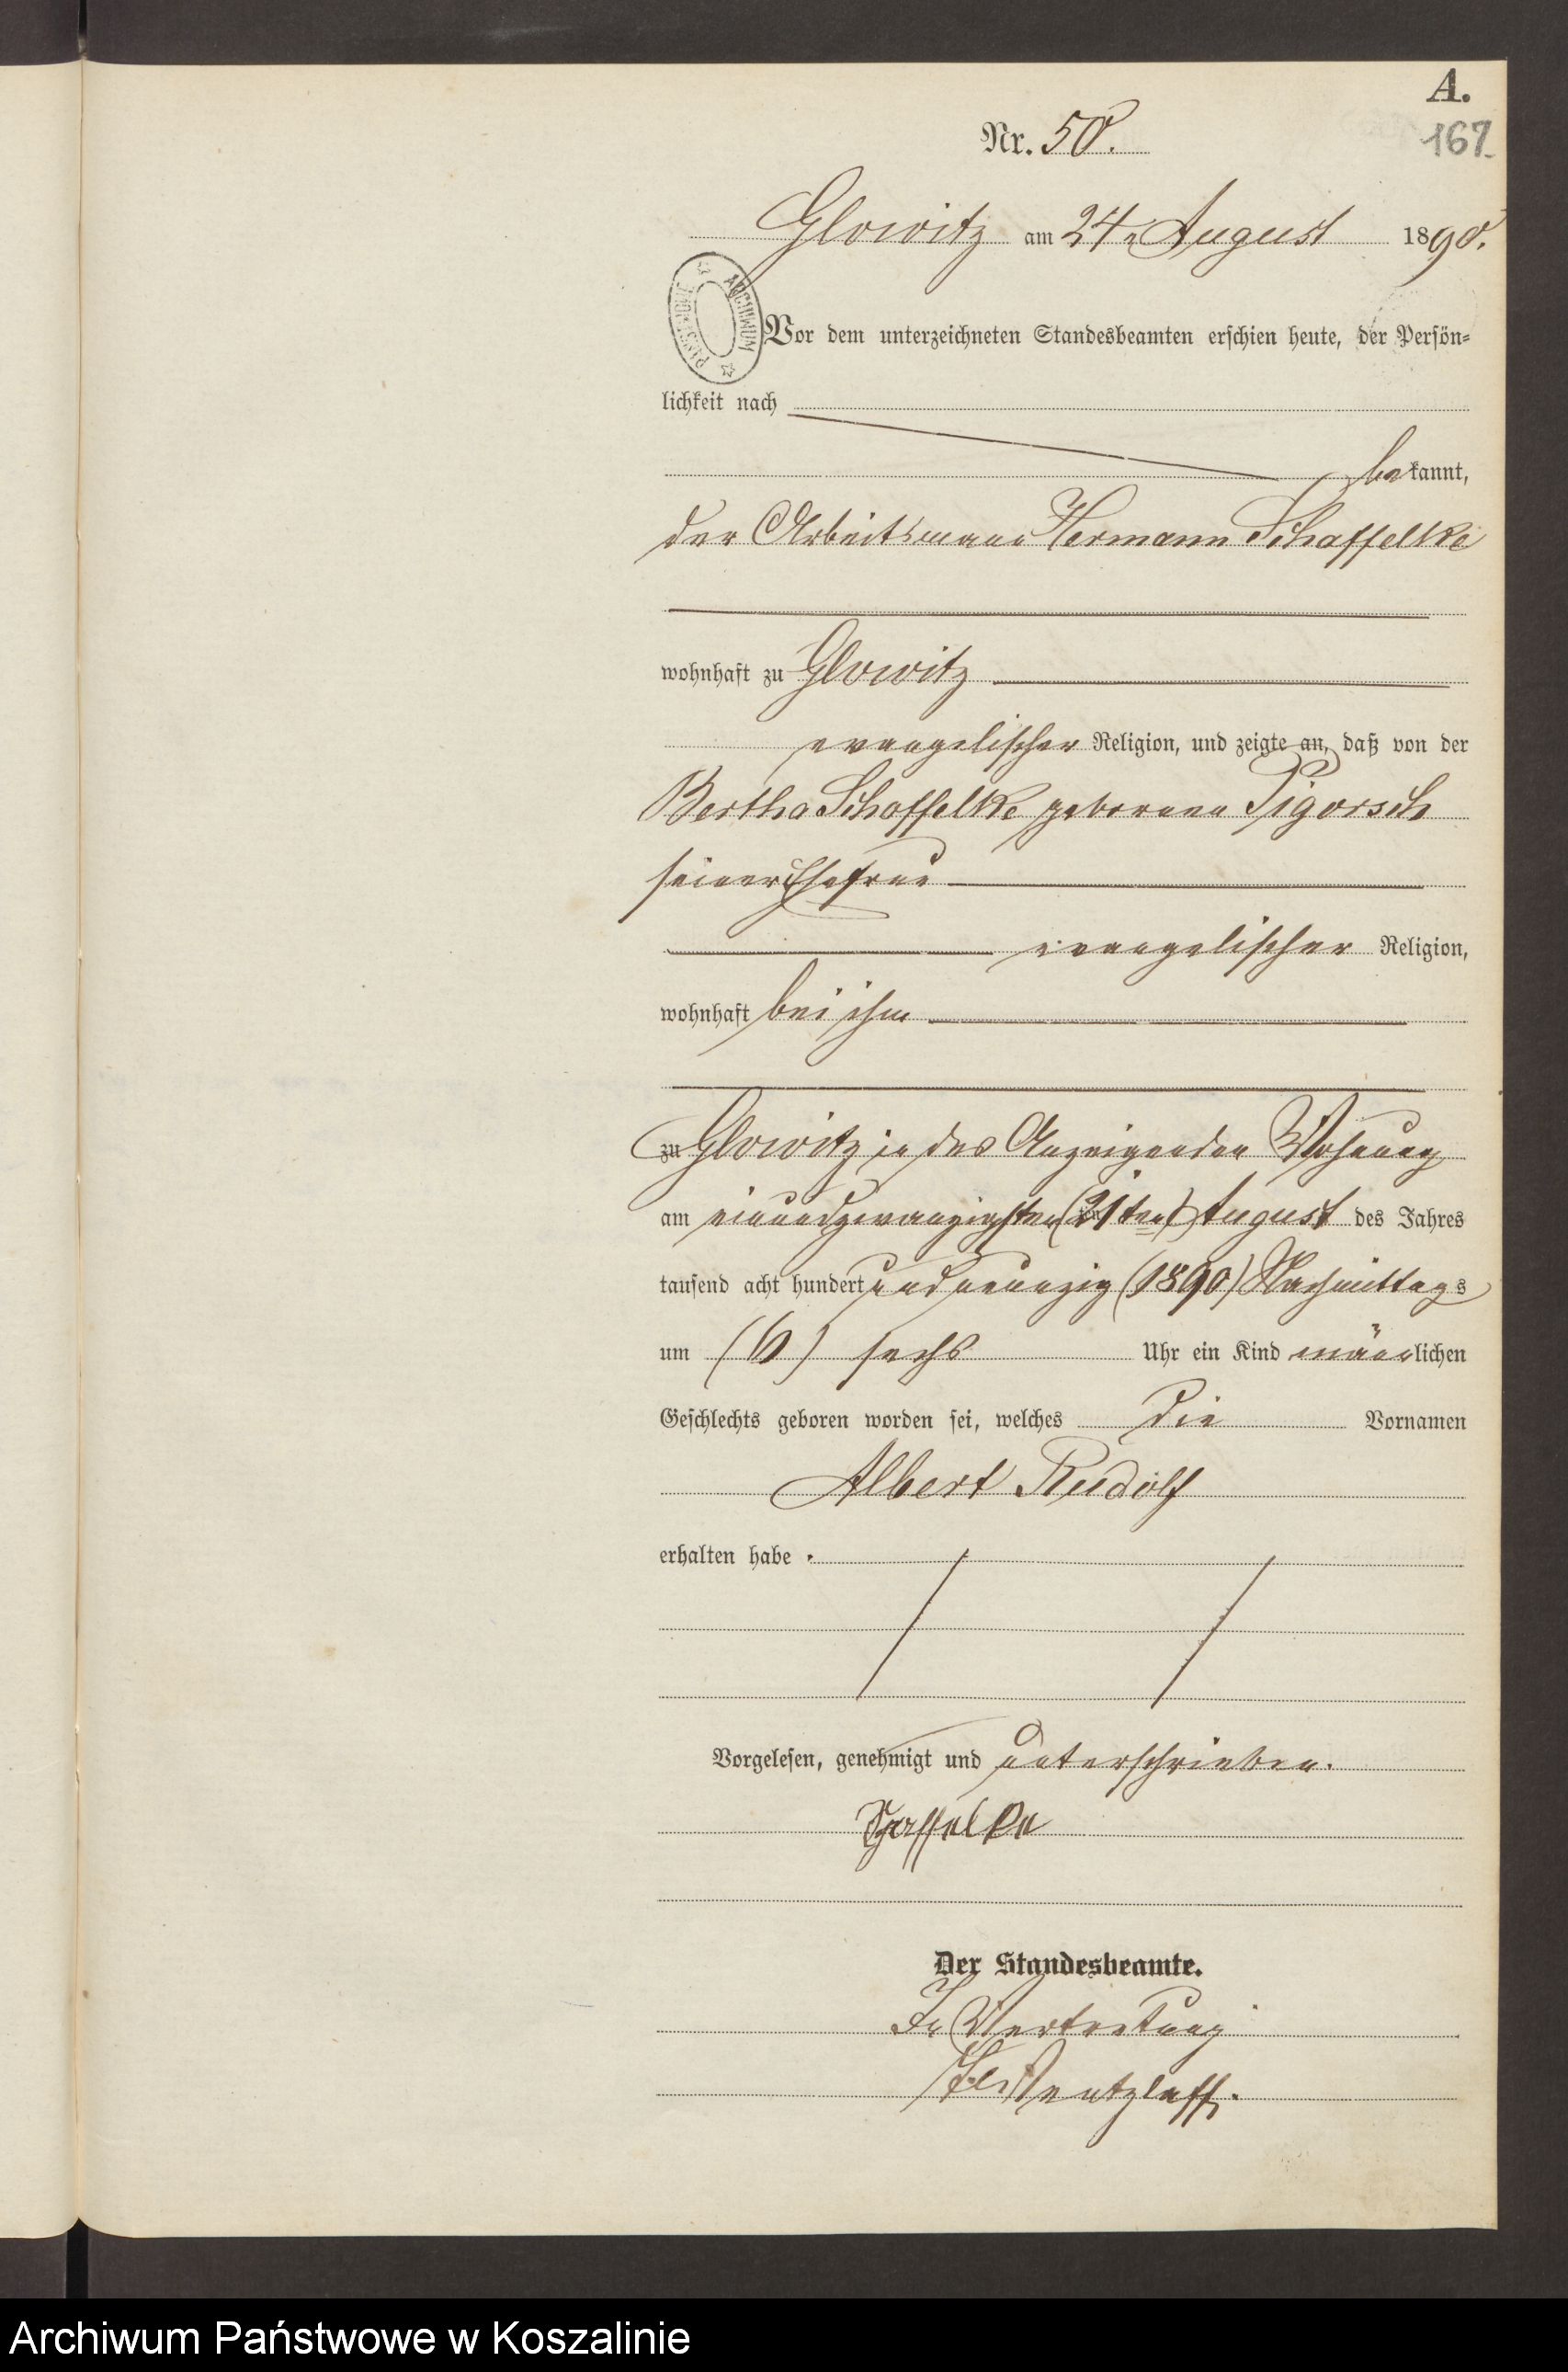 A.
167.
Nr. 50.
Glowitz am 24n August 1890.
ARCHIWUM PAŃSTWOWE
Vor dem unterzeichneten Standesbeamten erschien heute, der Persön-
lichkeit nach
bekannt,
der Arbeitsmann Hermann Schaffelke
wohnhaft zu Glowitz
evangelischer Religion, und zeigte an, daß von der
Bertha Schaffelke geborenen Pigorsch
seiner Ehefrau
evangelischer Religion,
wohnhaft bei ihm
zu Glowitz in des Anzeigenden Wohnung
am einundzwanzigsten (21ten) August des Jahres
tausend acht hundert und neunzig (1890) Nachmittags
um (6) sechs Uhr ein Kind männlichen
Geschlechts geboren worden sei, welches die Vornamen
Albert Rudolf
erhalten habe.
Vorgelesen, genehmigt und unterschrieben.
Schaffelke
Der Standesbeamte.
In Vertretung
Wentzlaff.
Archiwum Państwowe w Koszalinie